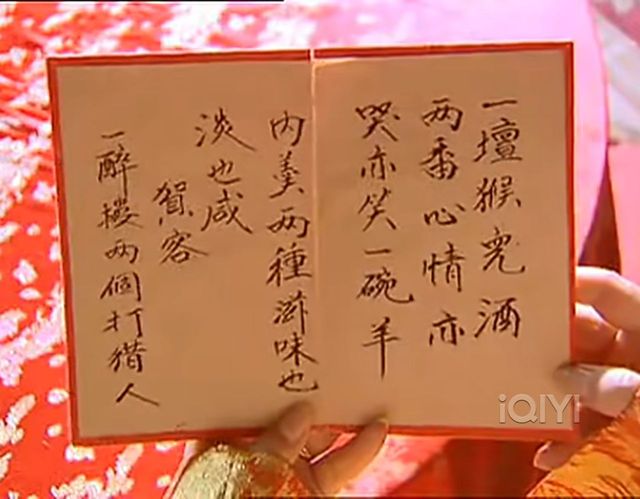 一壇猴兒酒
两番心情亦
哭亦笑一碗羊
内羹两種滋味也
淡也咸
賀客
一醉樓两個打猎人
iQIYI